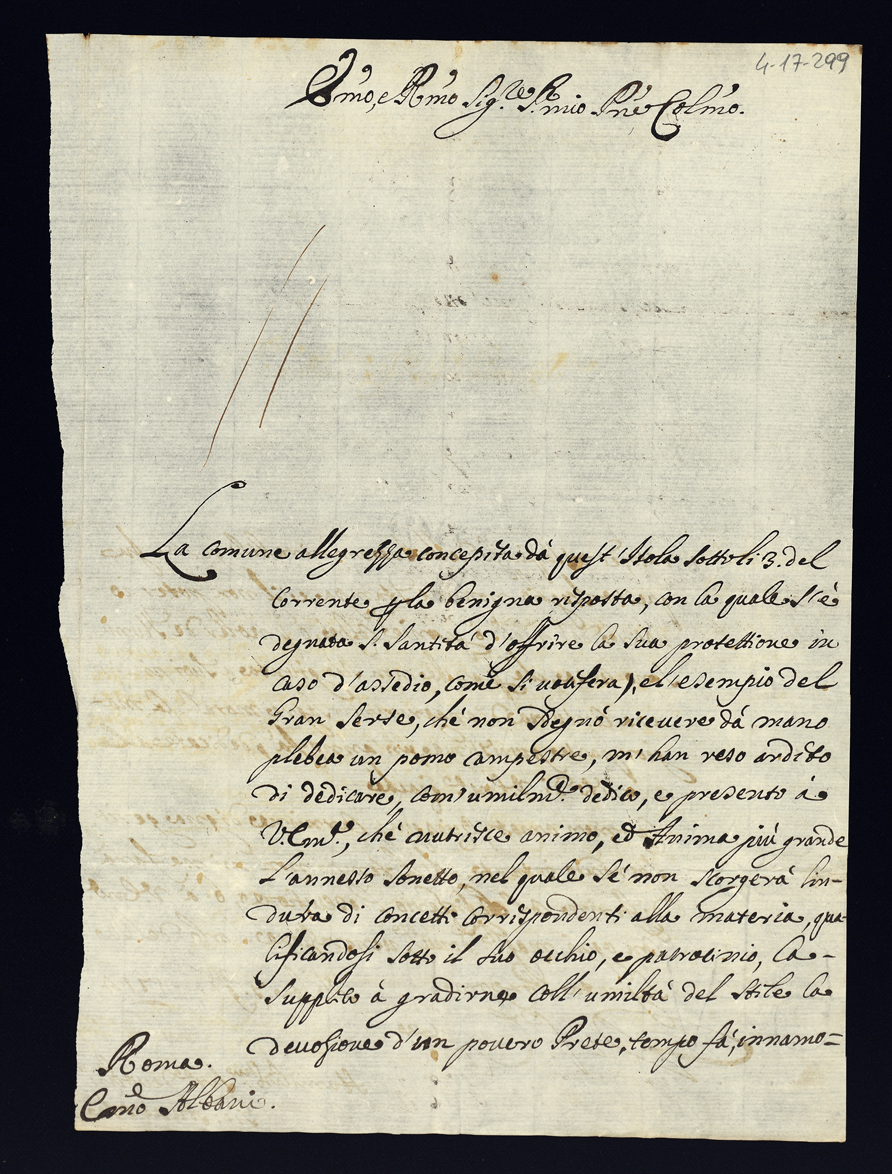 4-17-299
Emo, e Rmo Sig.re S.r mio Pne Colmo.
La comune allegrezza concepita dà quest'Isola sotto li 3. del
corrente p la benigna risposta, con la quale s'è
degnata S. Santità d'offrire la sua protettione in
caso d'assedio, come si vocifera), e l'esempio del
Gran Serse, chè non sdegnò ricevere dà mano
plebea un pomo campestre, m'han reso ardito
di dedicare, com'umilm.e dedico, e presento à
V. Em.a, chè nutrisce animo, ed Anima più grande
l'annesso Sonetto, nel quale sè non scorgerà lin-
dura di concetti corrispondenti alla materia, qua-
lificandosi sotto il suo occhio, e patrocinio, la
supplico à gradirne coll'umiltà del stile la
devozione d'un povero Prete, tempo fà, innamo=
Roma.
Emo Albani.